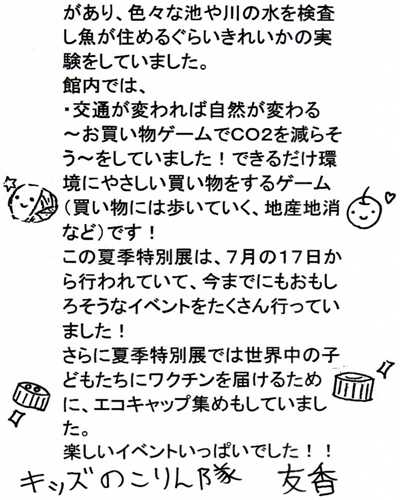 があり、色々な池や川の水を検査
し魚が住めるぐらいきれいかの実
験をしていました。
館内では、
・交通が変われば自然が変わる
～お買い物ゲームでCO2を減らそ
う～をしていました！できるだけ環
境にやさしい買い物をするゲーム
（買い物には歩いていく、地産地消
など）です！
この夏季特別展は、７月の１７日か
ら行われていて、今までにもおもし
ろそうなイベントをたくさん行ってい
ました！
さらに夏季特別展では世界中の子
どもたちにワクチンを届けるため
に、エコキャップ集めもしていまし
た。
楽しいイベントいっぱいでした！！
キッズのこりん隊　友香